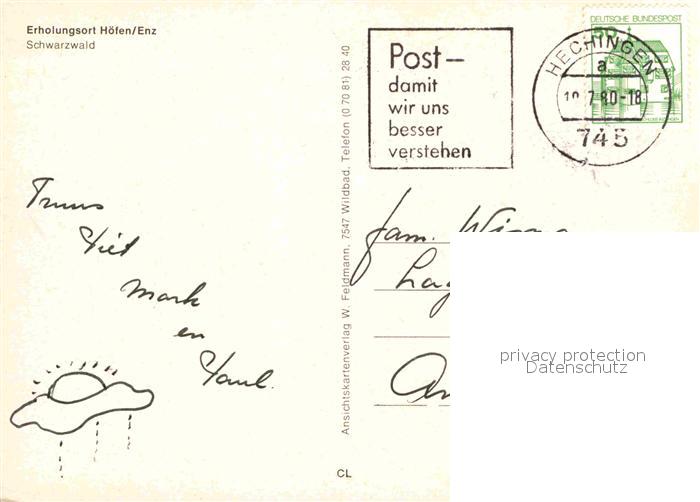 Erholungsort Höfen/Enz
Schwarzwald
Post –
damit
wir uns
besser
verstehen
DEUTSCHE BUNDESPOST
HECHINGEN
a
7.80-18
745
Truus
Piet
Mark
en
Paul.
Ansichtskartenverlag W. Feldmann, 7547 Wildbad, Telefon (0 70 81) 28 40
fam.
privacy protection
Datenschutz
CL